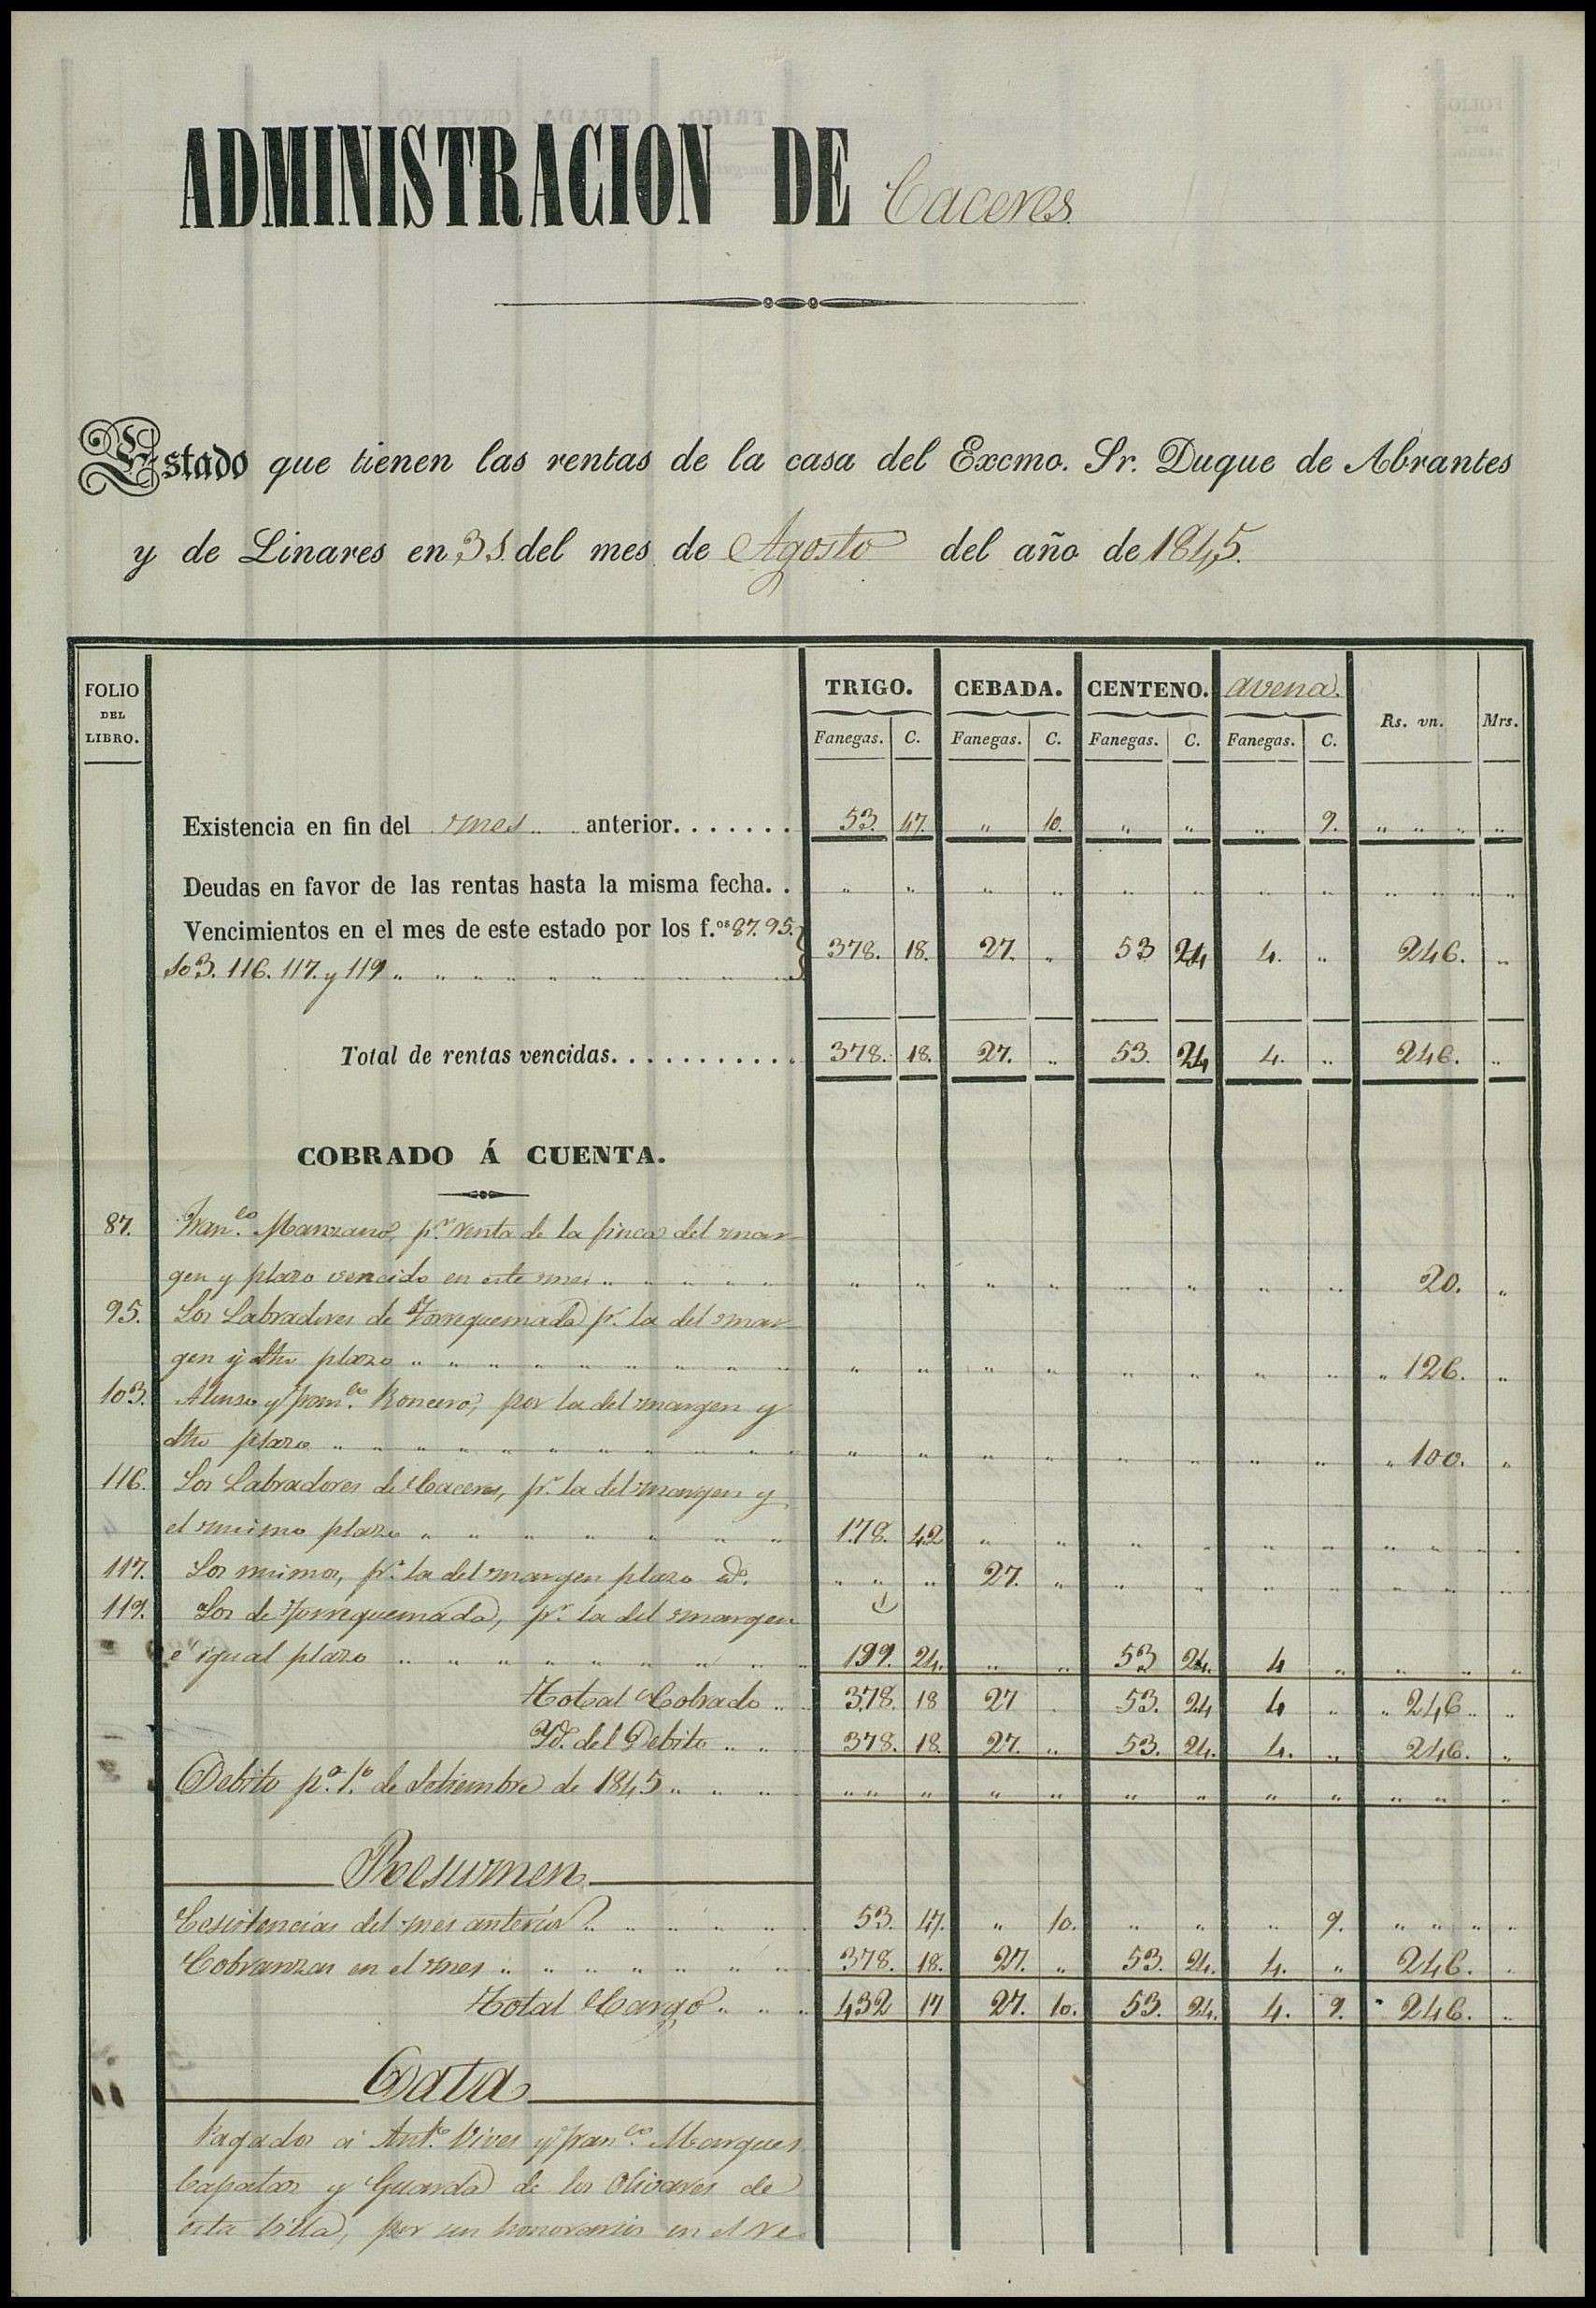 ADMINISTRACION DE Caceres
Estado que tienen las rentas de la casa del Excmo. Sr. Duque de Abrantes
y de Linares en 31 del mes de Agosto del año de 1845.
FOLIO DEL LIBRO. TRIGO. CEBADA. CENTENO. avena. Rs. vn. Mrs.
Fanegas. C. Fanegas. C. Fanegas. C. Fanegas. C.
Existencia en fin del mes anterior....... 53. 47. " 10. " " " 9. " " " "
Deudas en favor de las rentas hasta la misma fecha. . " " " " " " " " " " " "
Vencimientos en el mes de este estado por los f.os 87. 95.
103. 116. 117. y 119 " " " " " " " " " 378. 18. 27. " 53 24 4. " 246. "
Total de rentas vencidas........... 378. 18. 27. " 53. 24 4. " 246. "
COBRADO Á CUENTA.
87. Fran.co Manzano, p.r renta de la finca del mar-
gen y plazo vencido en este mes " " " " " " " " " " " " " 20. "
95. Los Labradores de Torrequemada p.r la del mar-
gen y dho plazo " " " " " " " " " " " " " " " " " " 126. "
103. Alonso y Fran.co Roncero, por la del margen y
dho plazo " " " " " " " " " " " " " " " " " " " " 100. "
116. Los Labradores de Caceres, p.r la del margen y
el mismo plazo " " " " " " " " 178. 42 " " " " " " " " " "
117. Los mismos, p.r la del margen plazo id. " " " 27. " " " " " " " " "
119. Los de Torrequemada, p.r la del margen
é igual plazo " " " " " " " " " 199. 24. " " 53 24. 4 " " " "
Total Cobrado " 378. 18 27 . 53. 24 4 " " 246 " "
Yd. del Debito " " 378. 18. 27. " 53. 24. 4. " 246. "
Debito p.a 1.o de Setiembre de 1845 " " " " " " " " " " " " " " " "
Resumen
Existencias del mes anterior " " " " " 53. 47. " 10. " " " 9. " " " "
Cobranzas en el mes " " " " " " " 378. 18. 27. " 53. 24. 4. " 246. "
Total Cargo " " " 432 17 27. 10. 53. 24. 4. 9. " 246. "
Data
Pagados á Ant.o Vives y Fran.co Marques
Capataz y Guarda de los Olivares de
esta Villa, por sus honorarios en el re-